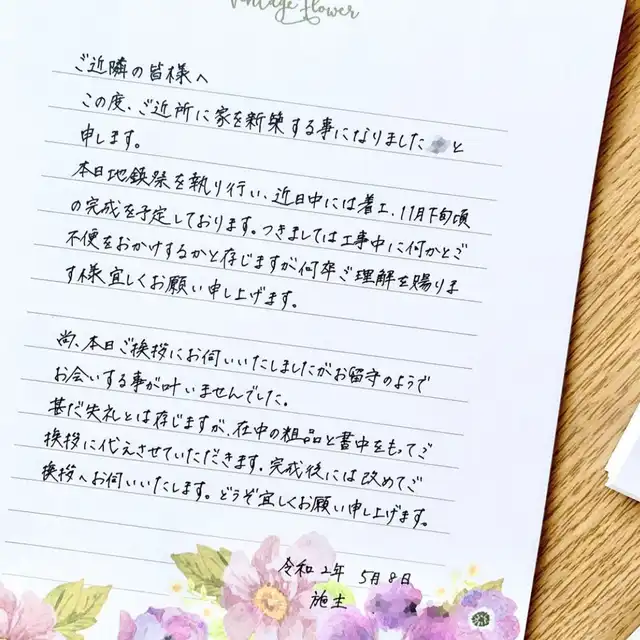 Vintage flower
ご近隣の皆様へ
この度、ご近所に家を新築する事になりました と
申します。
本日地鎮祭を執り行い、近日中には着工、11月下旬頃
の完成を予定しております。つきましては工事中に何かとご
不便をおかけするかと存じますが何卒ご理解を賜りま
す様宜しくお願い申し上げます。
尚、本日ご挨拶にお伺いいたしましたがお留守のようで
お会いする事が叶いませんでした。
甚だ失礼とは存じますが、在中の粗品と書中をもってご
挨拶に代えさせていただきます。完成後には改めてご
挨拶へお伺いいたします。どうぞ宜しくお願い申し上げます。
令和2年 5月8日
施主